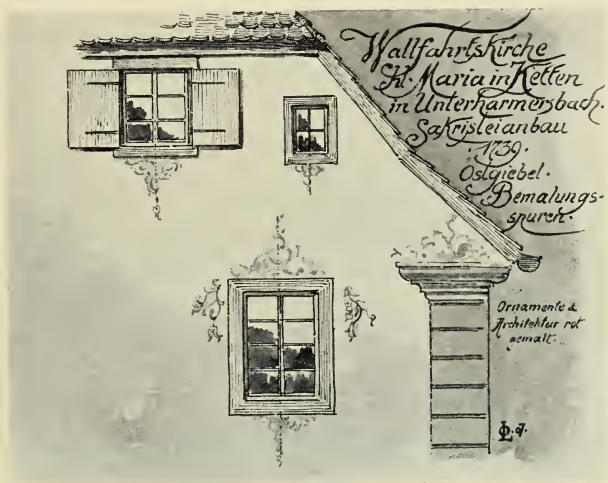 Wallfahrtskirche
Hl. Maria in Ketten
in Unterharmersbach.
Sakristeianbau
1739.
Ostgiebel.
Bemalungs-
spuren.
Ornamente &
Architektur rot
gemalt.